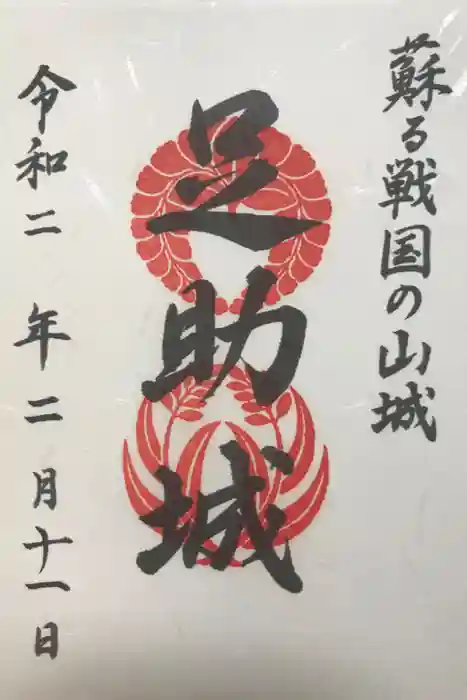 蘇る戦国の山城
足助城
令和二年二月十一日